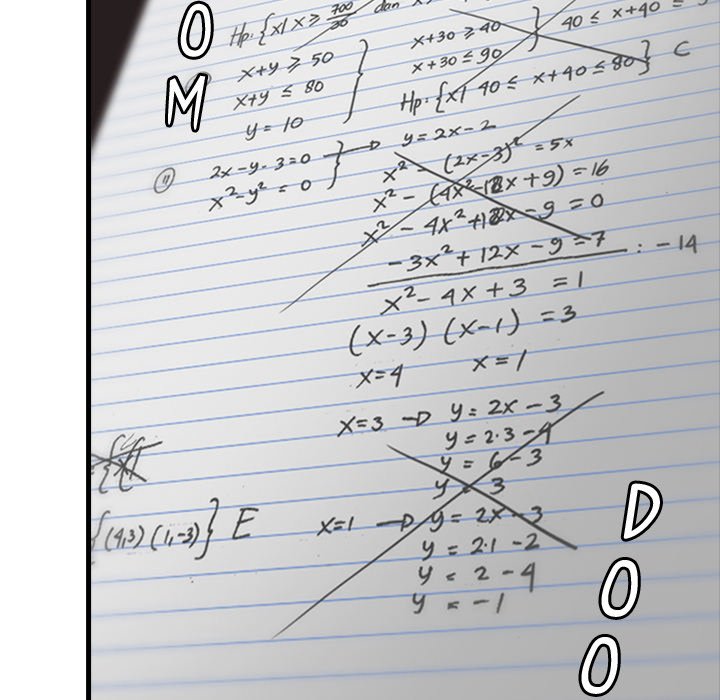 O
M
Hp. {x| x ≥ 700/30 dan x
x+y ≥ 50
x+y ≤ 80
y = 10
x+30 ≥ 40
x+30 ≤ 90
40 ≤ x+40 ≤
Hp. {x| 40 ≤ x+40 ≤ 80} C
11
2x-y-3=0
x²-y² = 0
y = 2x-2
x² - (2x-3)² = 5x
x² - (4x²-12x+9) = 16
x² - 4x²+12x-9 = 0
-3x²+12x-9=7 : -14
x²-4x+3 = 1
(x-3) (x-1) = 3
x=4 x=1
x=3 → y= 2x-3
y= 2.3-4
y = 6-3
y = 3
{(4,3) (1,-3)} E
x=1 → y= 2x-3
y = 2.1-2
y = 2-4
y = -1
D
O
O